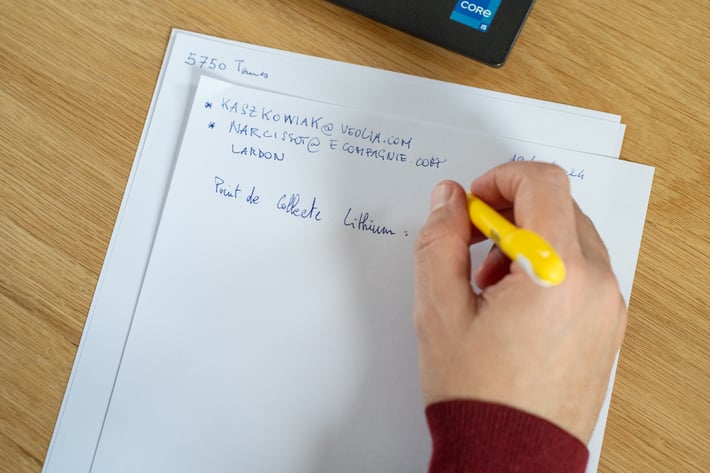 core
i5
5750 Tonnes
* KASZKOWIAK@ VEOLIA.COM
* NARCISSOT@ ECOMPAGNIE.COM
LARDON
Point de collecte Lithium :